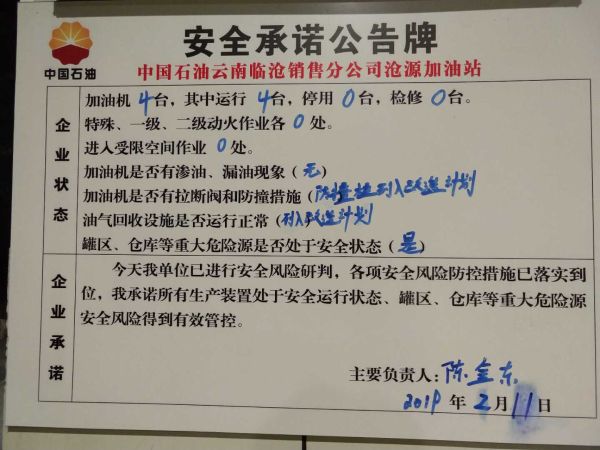 安全承诺公告牌
中国石油
中国石油云南临沧销售分公司沧源加油站
企业状态
加油机 4台，其中运行 4台，停用 0台，检修 0台。
特殊、一级、二级动火作业各 0 处。
进入受限空间作业 0 处。
加油机是否有渗油、漏油现象（无）
加油机是否有拉断阀和防撞措施（防撞柱列入改造计划
油气回收设施是否运行正常（列入改造计划
罐区、仓库等重大危险源是否处于安全状态（是）
企业承诺
今天我单位已进行安全风险研判，各项安全风险防控措施已落实到
位，我承诺所有生产装置处于安全运行状态、罐区、仓库等重大危险源
安全风险得到有效管控。
主要负责人：陈金东
2019 年 2 月 11 日